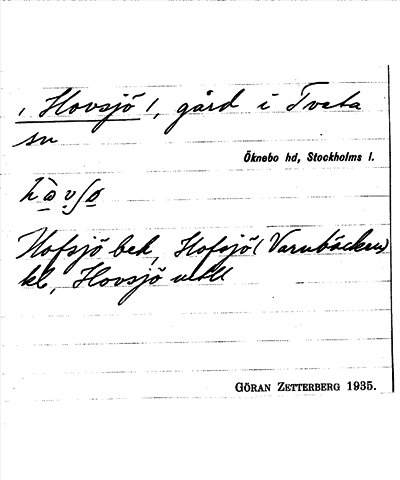 , Hovsjö /, gård i Tveta
sn
Öknebo hd, Stockholms l.
Hofsjö bek, Hofsjö (Varnbäcken)
kl, Hovsjö uttl
GÖRAN ZETTERBERG 1935.